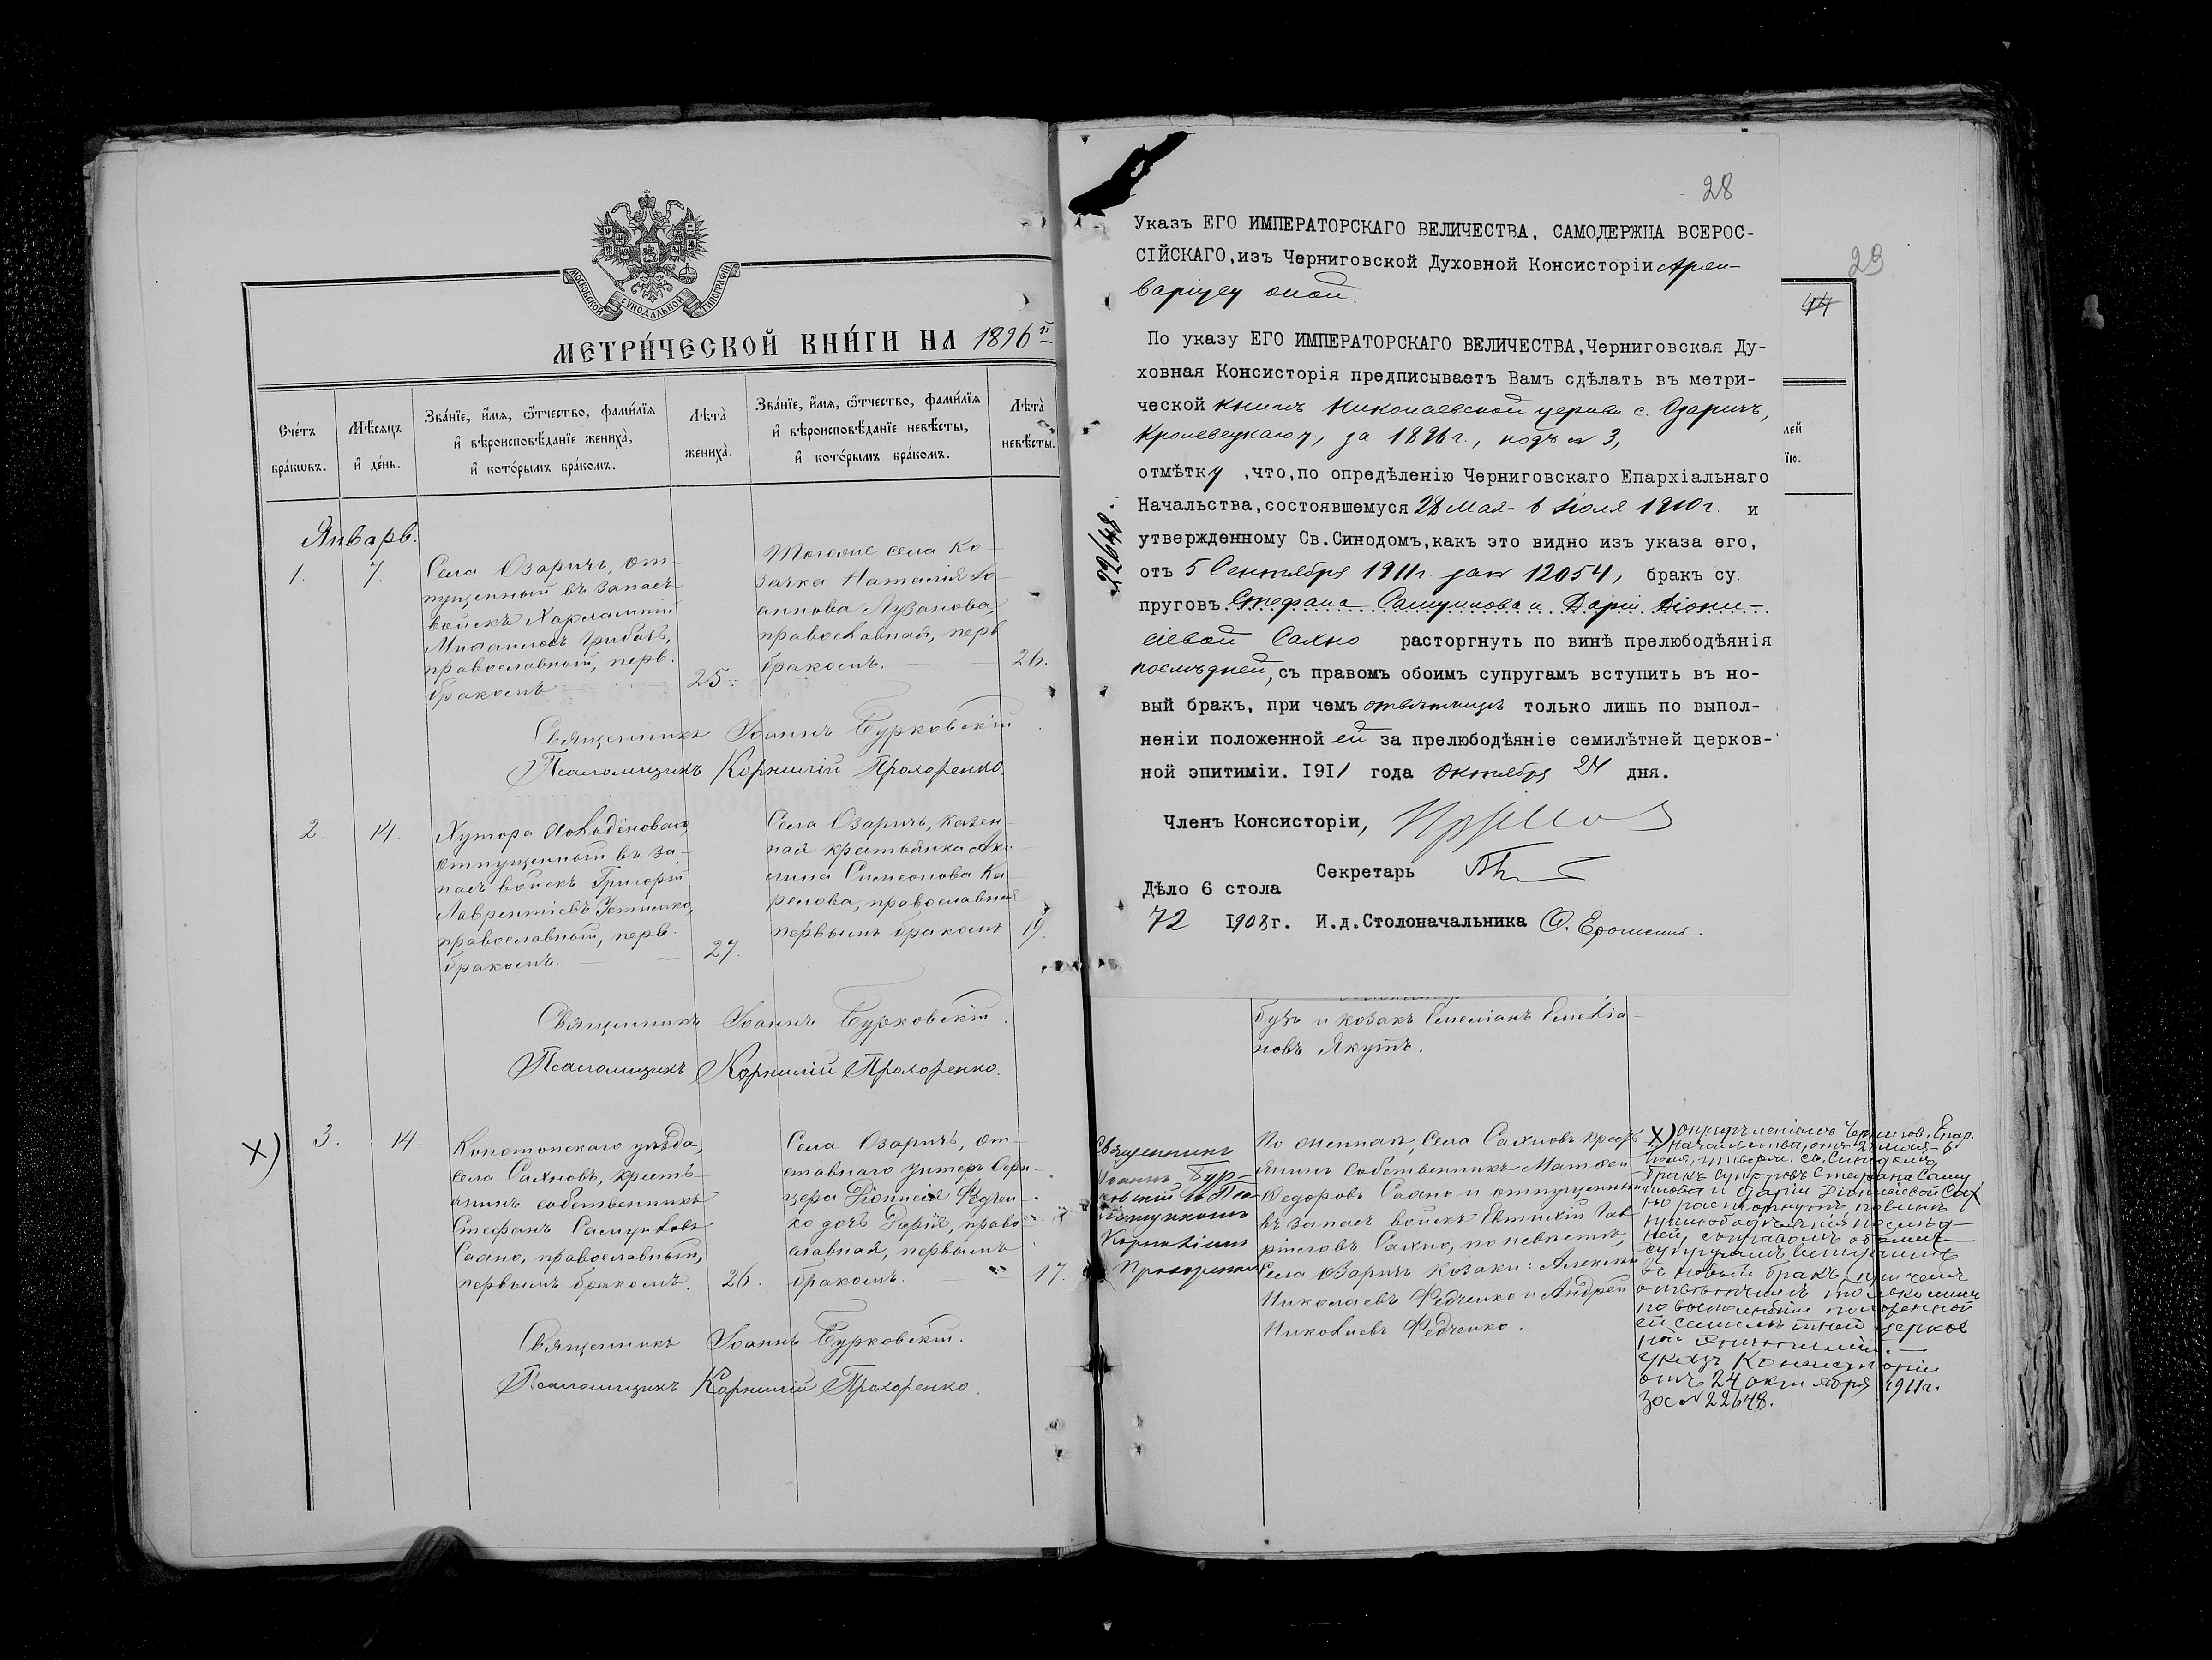 МОСКОВСКОЙ СѴНОДАЛЬНОЙ ТИПОГРАФІИ
МЕТРИ́ЧЕСКОЙ КНИ́ГИ НА 1896й
Сче́тъ бра́кѡвъ.
Мѣ́сѧцъ и҆ де́нь.
Зва́нїе, и҆́мѧ, ѻ҆́тчество, фами́лїѧ
и҆ вѣроисповѣ́данїе жениха̀,
и҆ кото́рымъ бра́комъ.
Лѣ́та̀ жениха̀.
Зва́нїе, и҆́мѧ, ѻ҆́тчество, фами́лїѧ
и҆ вѣроисповѣ́данїе невѣ́сты,
и҆ кото́рымъ бра́комъ.
Лѣ́та̀ невѣ́сты.
Январь.
1.
7.
Села Озаричъ, от-
пущенный въ запасъ
войскъ Харлампий
Михаиловъ Грибовъ,
православный, перв.
бракомъ
25.
Тогоже села ко-
зачка Наталия Іо-
аннова Лузанова,
православная, перв
бракомъ.
26.
Священникъ Іоаннъ Бурковскій
Псаломщикъ Корнилій Прохоренко.
2.
14.
Хутора
отпущенный въ за-
пасъ войскъ Григорій
Лаврентіевъ Устименко,
православный, перв.
бракомъ.
27.
Села Озаричъ, казен-
ная крестьянка Аки-
лина Симеонова Ка-
релова, православная
первымъ бракомъ
19.
Священникъ Іоаннъ Бурковскій.
Псаломщикъ Корнилій Прохоренко.
X)
3.
14.
Конотопскаго уѣзда,
села Сахновъ, кресть-
янинъ собственникъ
Стефанъ Самуиловъ
Сахно, православный,
первымъ бракомъ.
26.
Села Озаричъ, от-
ставнаго унтеръ Офи-
цера Діонисія Федчен-
ко дочь Дарія, право-
славная, первымъ
бракомъ.
17.
Священникъ Іоаннъ Бурковскій.
Псаломщикъ Корнилій Прохоренко.
28
29
44
Указъ ЕГО ИМПЕРАТОРСКАГО ВЕЛИЧЕСТВА, САМОДЕРЖЦА ВСЕРОС-
СІЙСКАГО,изъ Черниговской Духовной Консисторіи Архи-
варіусу оной.
По указу ЕГО ИМПЕРАТОРСКАГО ВЕЛИЧЕСТВА,Черниговская Ду-
ховная Консисторія предписываетъ Вамъ сдѣлать въ метри-
ческой книгѣ Николаевской церкви с. Озаричъ,
Кролевецкаго у, за 1896 г., подъ № 3,
отмѣтку ,что,по опредѣленію Черниговскаго Епархіальнаго
Начальства,состоявшемуся 28 Мая- 6 Іюля 1910 г. и
утвержденному Св.Синодомъ,какъ это видно изъ указа его,
отъ 5 Сентября 1911 г. за № 12054, бракъ су
пруговъ Стефана Самуилова и Даріи Діони-
сіевой Сахно расторгнуть по винѣ прелюбодѣянія
послѣдней, съ правомъ обоимъ супругамъ вступить въ но-
вый бракъ, при чемъ отвѣтчицѣ только лишь по выпол-
неніи положенной ей за прелюбодѣяніе семилѣтней церков-
ной эпитиміи. 1911 года Октября 24 дня.
Членъ Консисторіи,
Секретарь
Дѣло 6 стола
72 1908г. И.д.Столоначальника
22648
бузъ и козакъ Емеліанъ Емеліа-
новъ Якутъ.
Священникъ
Іоаннъ Бур-
ковскій съ Пса-
ломщикомъ
Корниліемъ
Прохоренко
По женихѣ, села Сахновъ крест-
янинъ собственникъ Матѳей
Ѳедоровъ Сахно и отпущенный
въ запасъ войскъ Евтихій Гав-
ріиловъ Сахно, по невѣстѣ,
Села Озаричъ козаки: Алексій
Николаевъ Федченко и Андрей
Николаевъ Федченко.
X) Опредѣленіемъ Чернигов. Епар.
Начальства, отъ 28 мая - 6
Іюля, утвержд. Св. Синодомъ,
бракъ супруговъ Стефана Саму
илова и Даріи Діонисіевой Сах
но расторгнутъ, по винѣ
прелюбодѣянія послѣд-
ней, съ правомъ обоимъ
супругамъ вступить
въ новый бракъ, при чемъ
отвѣтчицѣ только лишь
по выполненіи положенной
ей семилѣтней церков
ной эпитиміи.
Указъ Консисторіи
отъ 24 октября 1911г.
за № 22648.